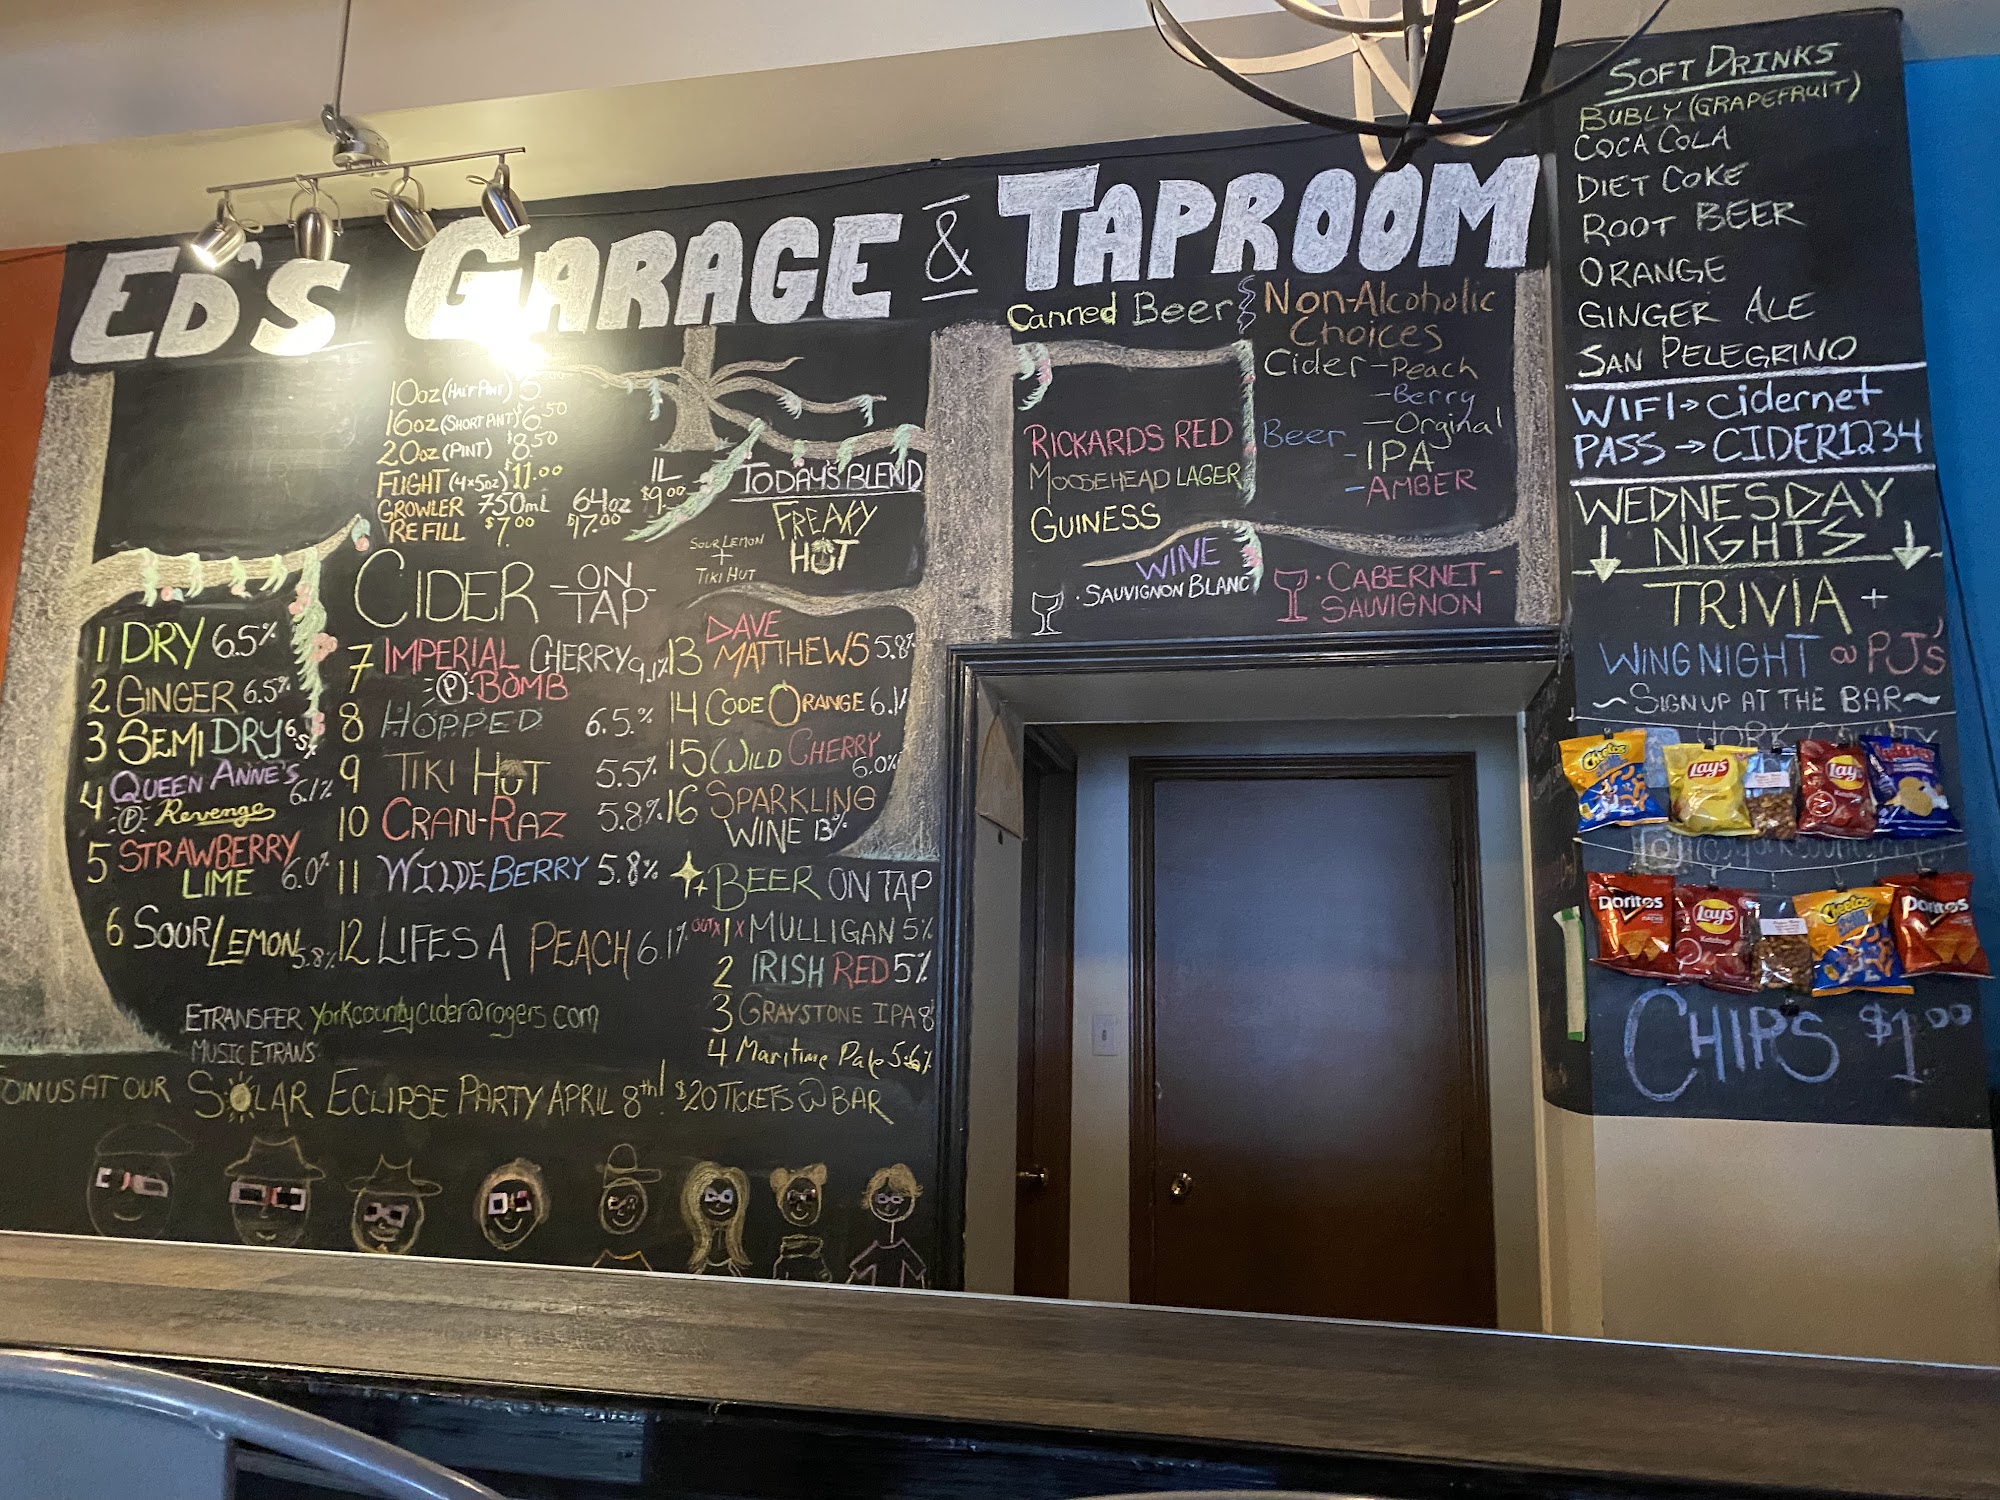 ED'S GARAGE & TAPROOM
10oz (HALF PINT) 5.00
16oz (SHORT PINT) $6.50
20oz (PINT) $8.50
FLIGHT (4x5oz) $11.00
GROWLER 750mL 64oz 1L
REFILL $7.00 $17.00 $9.00
TODAY'S BLEND
FREAKY
HUT
SOUR LEMON
+
TIKI HUT
CIDER -ON TAP-
1 DRY 6.5%
2 GINGER 6.5%
3 SEMI DRY 6.5%
4 QUEEN ANNE'S
(P) Revenge 6.1%
5 STRAWBERRY
LIME 6.0%
6 SOUR LEMON 5.8%
7 IMPERIAL CHERRY 9.1%
(P) BOMB
8 HOPPED 6.5%
9 TIKI HUT 5.5%
10 CRAN-RAZ 5.8%
11 WILDEBERRY 5.8%
12 LIFES A PEACH 6.1%
13 DAVE
MATTHEWS 5.8%
14 CODE ORANGE 6.1
15 WILD CHERRY
6.0%
16 SPARKLING
WINE 13%
BEER ON TAP
OUT x 1 x MULLIGAN 5%
2 IRISH RED 5%
3 GRAYSTONE IPA 8
4 Maritime Pale 5.6%
ETRANSFER yorkcountycider@rogers.com
MUSIC ETRANS
JOIN US AT OUR SOLAR ECLIPSE PARTY APRIL 8th! $20 TICKETS @ BAR
Canned Beer
RICKARDS RED
MOOSEHEAD LAGER
GUINESS
Non-Alcoholic
Choices
Cider - Peach
- Berry
- Orginal
Beer
- IPA
- AMBER
WINE
· SAUVIGNON BLANC
· CABERNET-
SAUVIGNON
SOFT DRINKS
BUBLY (GRAPEFRUIT)
COCA COLA
DIET COKE
ROOT BEER
ORANGE
GINGER ALE
SAN PELEGRINO
WIFI → cidernet
PASS → CIDER1234
WEDNESDAY
↓ NIGHTS ↓
TRIVIA +
WING NIGHT @ PJ's
~SIGN UP AT THE BAR~
YORK COUNTY
Cheetos
Lay's
Lay's
Doritos
Lay's
Ketchup
Cheetos
Doritos
CHIPS $1.00